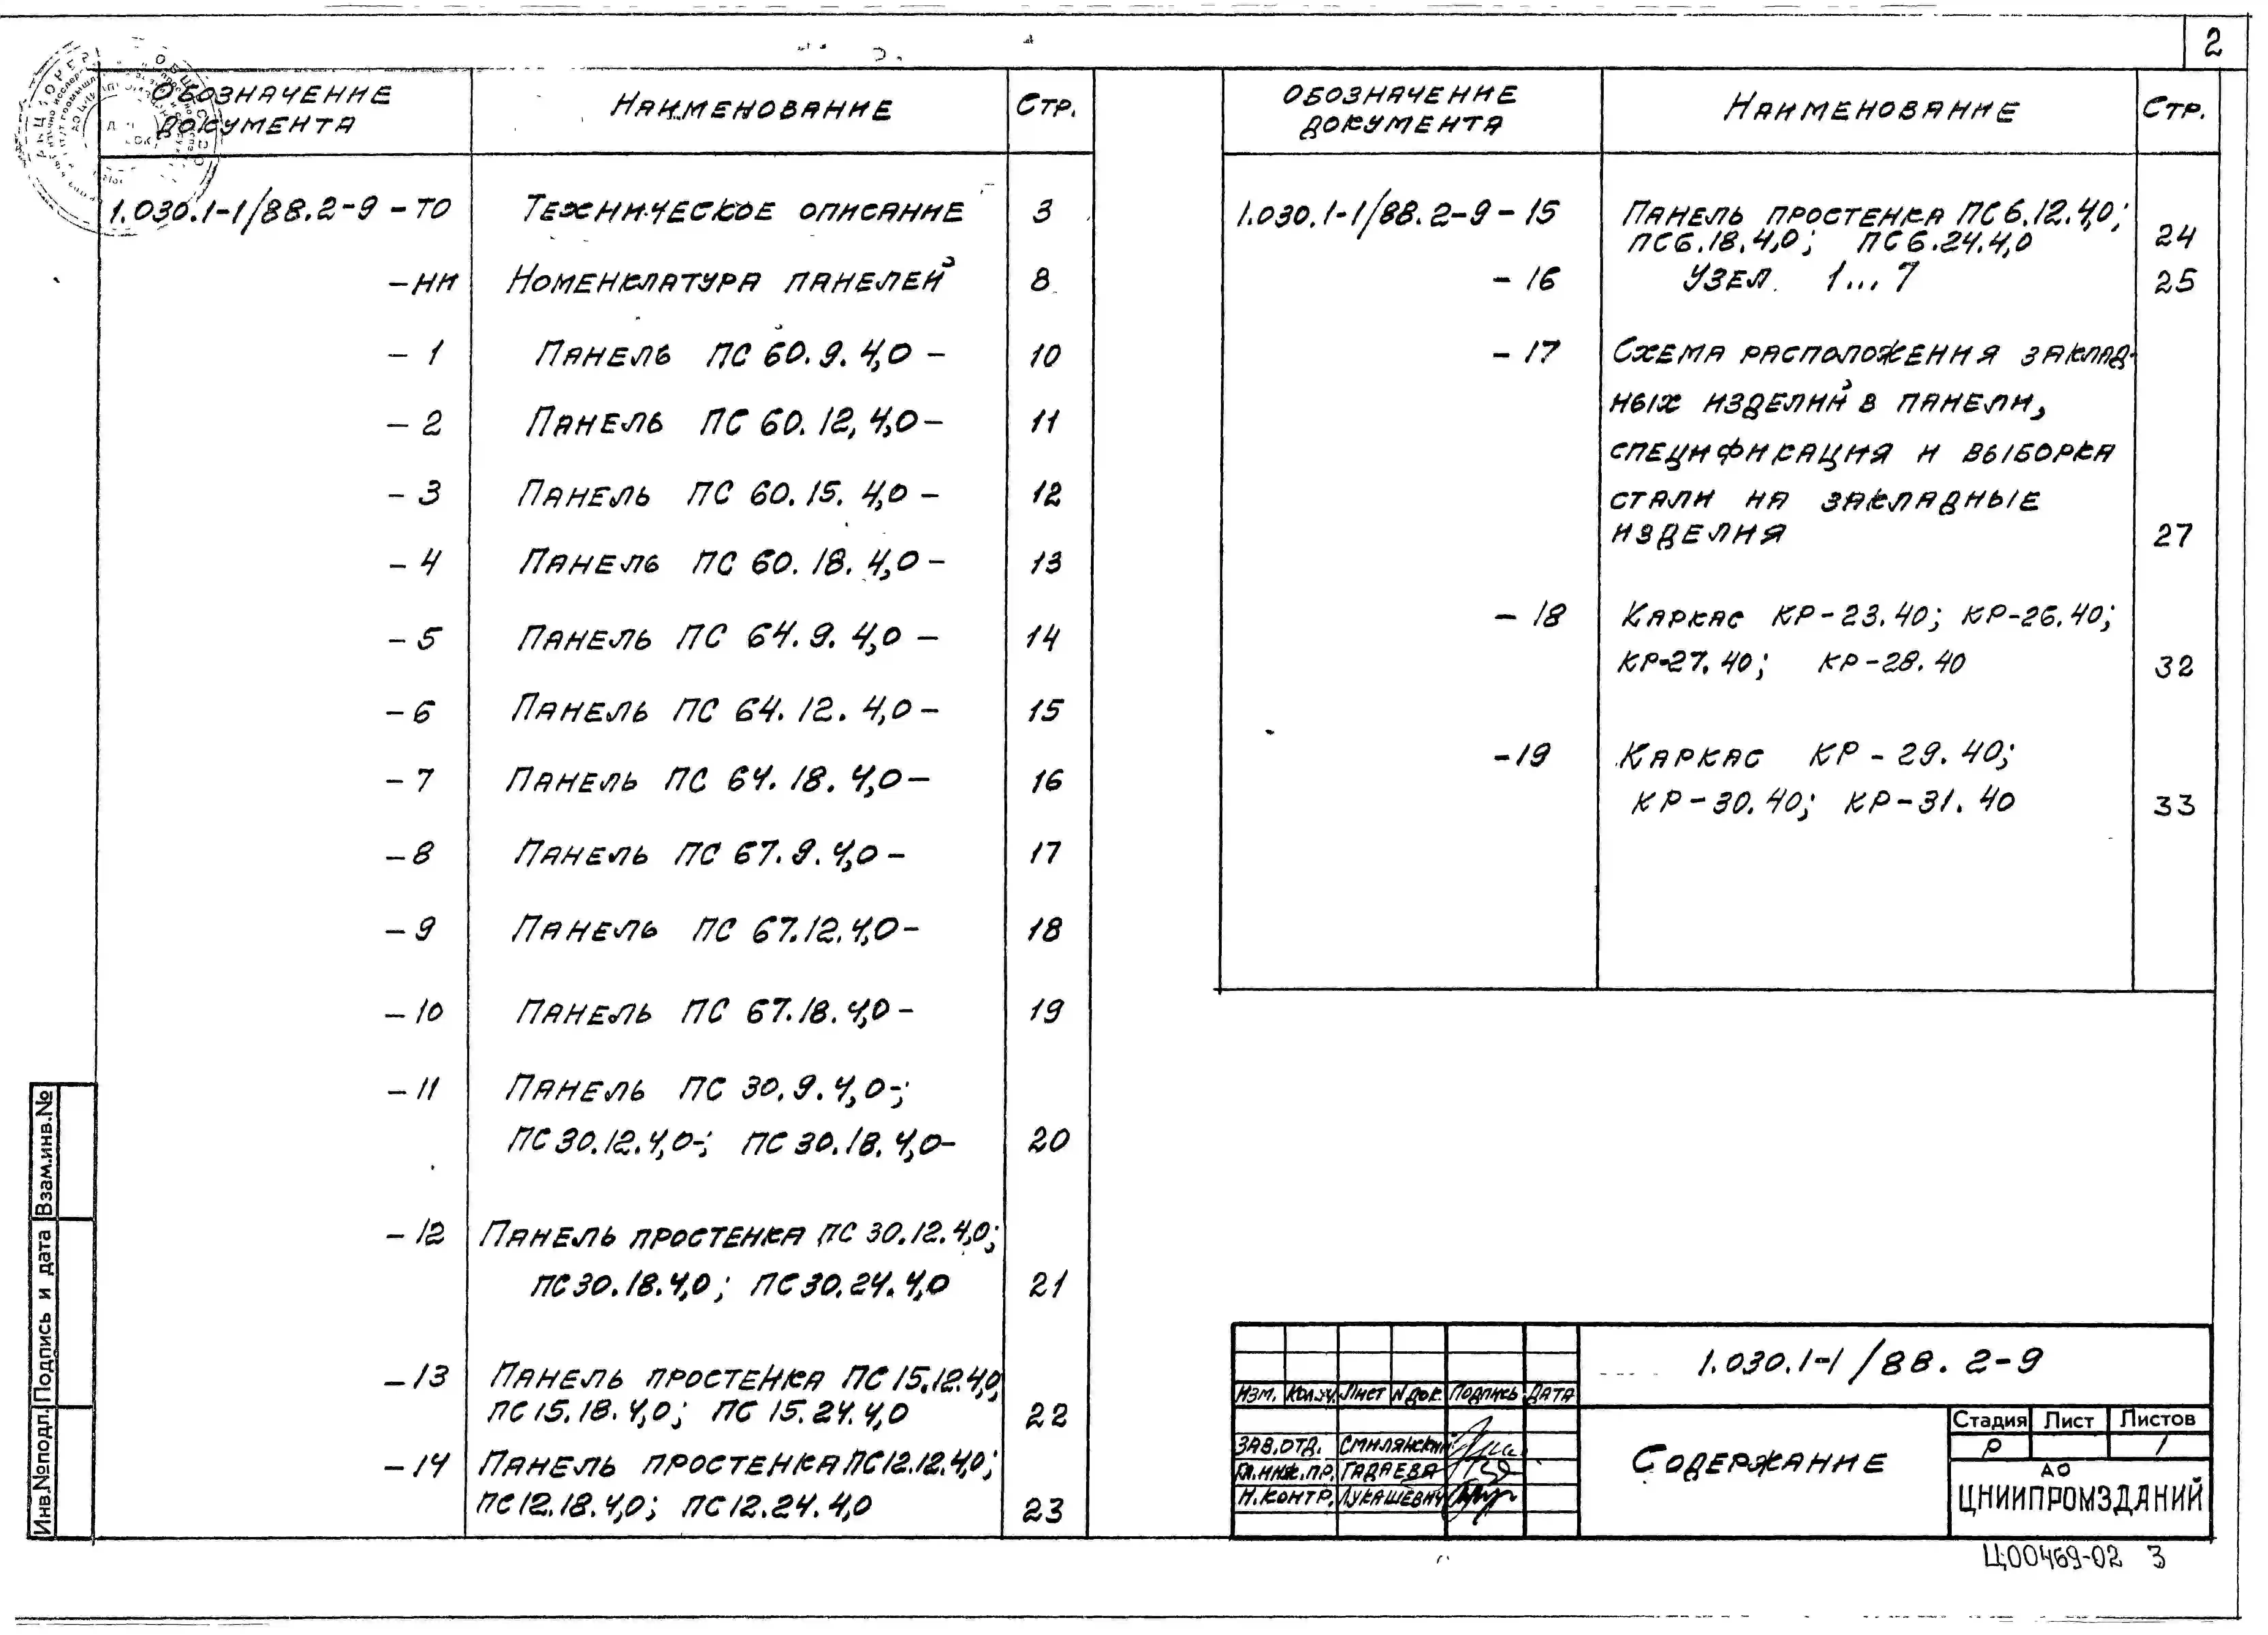 2
Обозначение документа Наименование Стр.
1.030.1-1/88.2-9 - ТО Техническое описание 3
- НИ Номенклатура панелей 8
- 1 Панель ПС 60.9.4,0 - 10
- 2 Панель ПС 60.12,4,0 - 11
- 3 Панель ПС 60.15.4,0 - 12
- 4 Панель ПС 60.18.4,0 - 13
- 5 Панель ПС 64.9.4,0 - 14
- 6 Панель ПС 64.12.4,0 - 15
- 7 Панель ПС 64.18.4,0 - 16
- 8 Панель ПС 67.9.4,0 - 17
- 9 Панель ПС 67.12.4,0 - 18
- 10 Панель ПС 67.18.4,0 - 19
- 11 Панель ПС 30.9.4,0-;
ПС 30.12.4,0-; ПС 30.18.4,0- 20
- 12 Панель простенка ПС 30.12.4,0;
ПС 30.18.4,0; ПС 30.24.4,0 21
- 13 Панель простенка ПС 15.12.4,0;
ПС 15.18.4,0; ПС 15.24.4,0 22
- 14 Панель простенка ПС 12.12.4,0;
ПС 12.18.4,0; ПС 12.24.4,0 23
Обозначение документа Наименование Стр.
1.030.1-1/88.2-9 - 15 Панель простенка ПС 6.12.4,0;
ПС 6.18.4,0; ПС 6.24.4,0 24
- 16 Узел 1...7 25
- 17 Схема расположения заклад-
ных изделий в панели,
спецификация и выборка
стали на закладные
изделия 27
- 18 Каркас КР-23.40; КР-26.40;
КР-27.40; КР-28.40 32
- 19 Каркас КР-29.40;
КР-30.40; КР-31.40 33
Инв.№ подл. Подпись и дата Взам.инв.№
1.030.1-1/88.2-9
Изм. Кол.уч. Лист №док. Подпись Дата
Зав.отд. Смилянский
Гл.инж.пр. Гадаева
Н.контр. Лукашевич
Содержание
Стадия Лист Листов
Р 1
АО
ЦНИИПРОМЗДАНИЙ
Ц00469-02 3